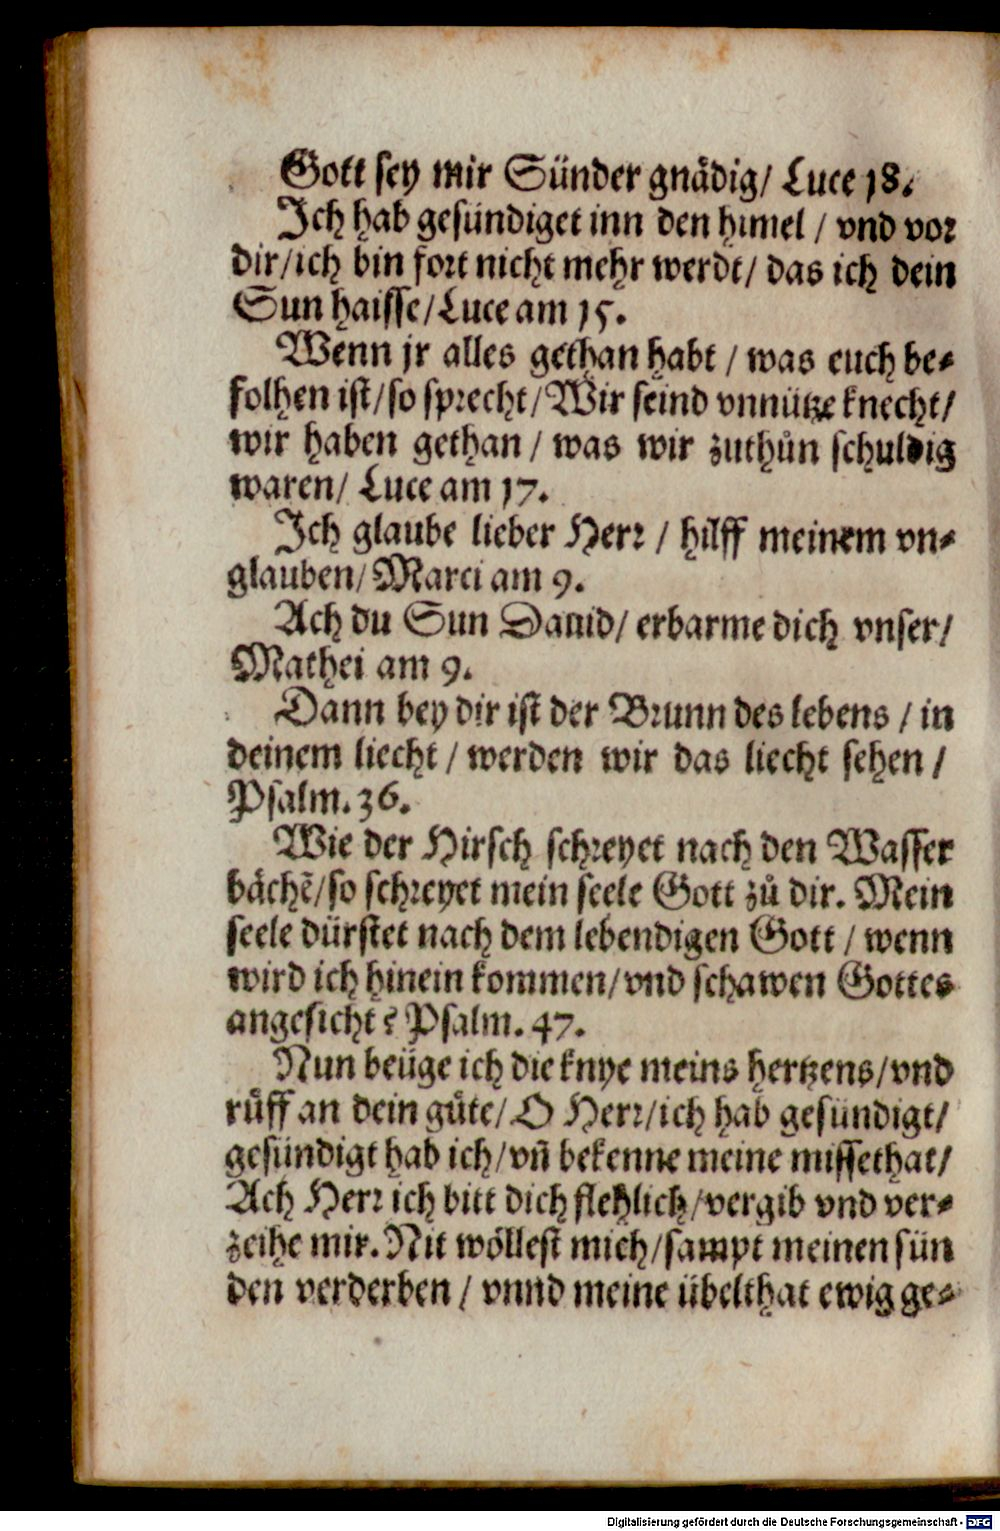 Gott sey mir Sünder gnädig/ Luce 18.
Ich hab gesündiget inn den himel / vnd vor
dir/ich bin fort nicht mehr werdt/ das ich dein
Sun haisse/Luce am 15.
Wenn jr alles gethan habt / was euch be-
folhen ist/so sprecht/Wir seind vnnütze knecht/
wir haben gethan / was wir zuthůn schuldig
waren/ Luce am 17.
Ich glaube lieber Herr / hilff meinem vn-
glauben/Marci am 9.
Ach du Sun Dauid/ erbarme dich vnser/
Mathei am 9.
Dann bey dir ist der Brunn des lebens / in
deinem liecht / werden wir das liecht sehen /
Psalm. 36.
Wie der Hirsch schreyet nach den Wasser
bächẽ/so schreyet mein seele Gott zů dir. Mein
seele dürstet nach dem lebendigen Gott / wenn
wird ich hinein kommen/vnd schawen Gottes
angesicht? Psalm. 47.
Nun beüge ich die knye meins hertzens/vnd
růff an dein güte/O Herr/ich hab gesündigt/
gesündigt hab ich/vñ bekenne meine missethat/
Ach Herr ich bitt dich flehlich/vergib vnd ver-
zeihe mir. Nit wöllest mich/sampt meinen sün
den verderben / vnnd meine übelthat ewig ge-
Digitalisierung gefördert durch die Deutsche Forschungsgemeinschaft - DFG